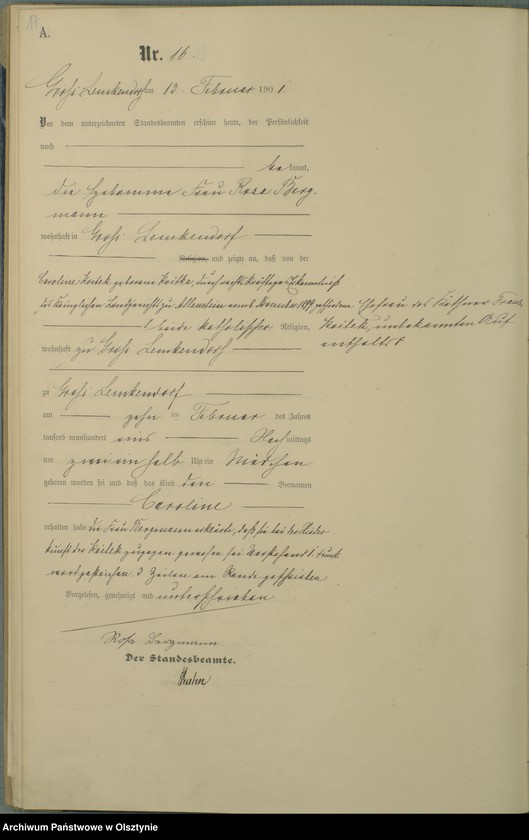 17
A.
Nr. 16.
Gross Lemkendorf am 12. Februar 1901.
Vor dem unterzeichneten Standesbeamten erschien heute, der Persönlichkeit
nach
be kannt,
die Hebamme Frau Rosa Berg-
mann
wohnhaft in Gross Lemkendorf
Religion, und zeigte an, daß von der
Caroline Koitek geborene Koitka, durch rechtskräftiges Erkenntniß
des Königlichen Landgerichts zu Allenstein vom November 1899 geschiedenen Ehefrau des Käthner Franz
Koitek, unbekannten Auf-
enthalts
beide katholischer Religion,
wohnhaft zu Gross Lemkendorf
zu Gross Lemkendorf
am zehn ten Februar des Jahres
tausend neunhundert eins Nach mittags
um zwei ein halb Uhr ein Mädchen
geboren worden sei und daß das Kind den Vornamen
Caroline
erhalten habe die Frau Bergmann erklärte, daß sie bei der Nieder-
kunft der Koitek zugegen gewesen sei Vorstehend 1 Druck-
wort gestrichen. 3 Zeilen am Rande geschrieben
Vorgelesen, genehmigt und unterschrieben
Rosa Bergmann
Der Standesbeamte.
Archiwum Państwowe w Olsztynie